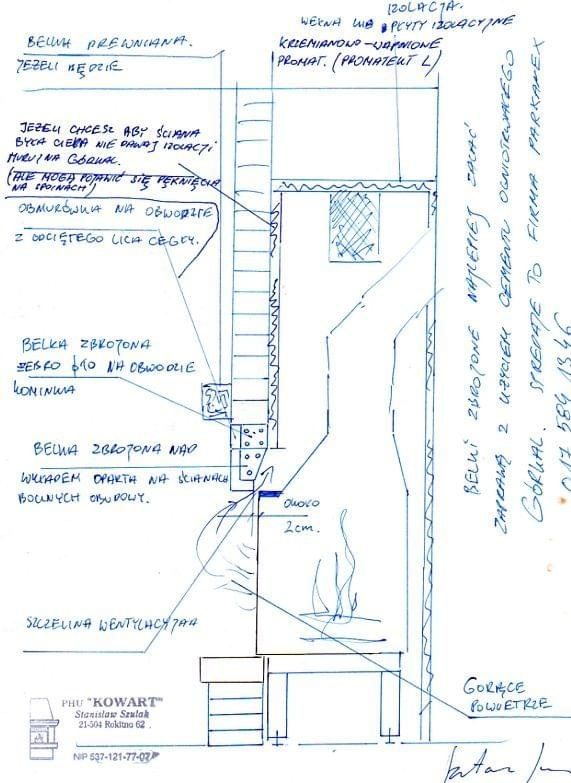 IZOLACJA.
WEŁNA LUB PŁYTY IZOLACYJNE
KRZEMIANOWO-WAPNIOWE
PROMAT. (PROMATEKT L)
BELKA DREWNIANA.
JEŻELI BĘDZIE
JEŻELI CHCESZ ABY ŚCIANA
BYŁA CIEPŁA NIE DAWAJ IZOLACJI
MURUJ NA GÓRKAL.
(ALE MOGĄ POJAWIĆ SIĘ PĘKNIĘCIA
NA SPOINACH)
OBMURÓWKA NA OBWODZIE
Z ODCIĘTEGO LICA CEGŁY.
BELKA ZBROJONA
ŻEBRO Ø10 NA OBWODZIE
KOMINKA
BELKA ZBROJONA NAD
WKŁADEM OPARTA NA ŚCIANACH
BOCZNYCH OBUDOWY.
OKOŁO
2cm.
SZCZELINA WENTYLACYJNA
GORĄCE
POWIETRZE
BELKI ZBROJONE NAJLEPIEJ ZALAĆ
ZAPRAWĄ Z UŻYCIEM CEMENTU OGNIOTRWAŁEGO
GÓRKAL. SPRZEDAJE TO FIRMA PARKANEX
017 584 1346
PHU "KOWART"
Stanisław Szulak
21-504 Rokitno 62
NIP 537-121-77-07